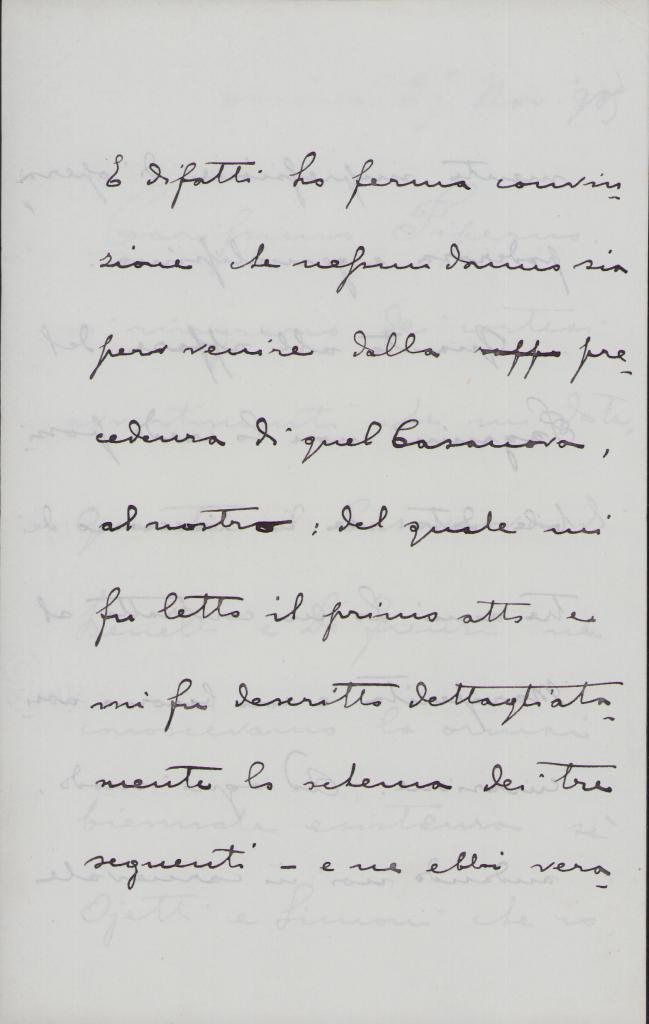 E difatti ho ferma convin-
zione che nessun danno sia
per venire dalla pre-
cedenza di quel Casanova,
al nostro: del quale mi
fu letto il primo atto e
mi fu descritto dettagliata-
mente lo schema dei tre
seguenti - e ne ebbi vera-